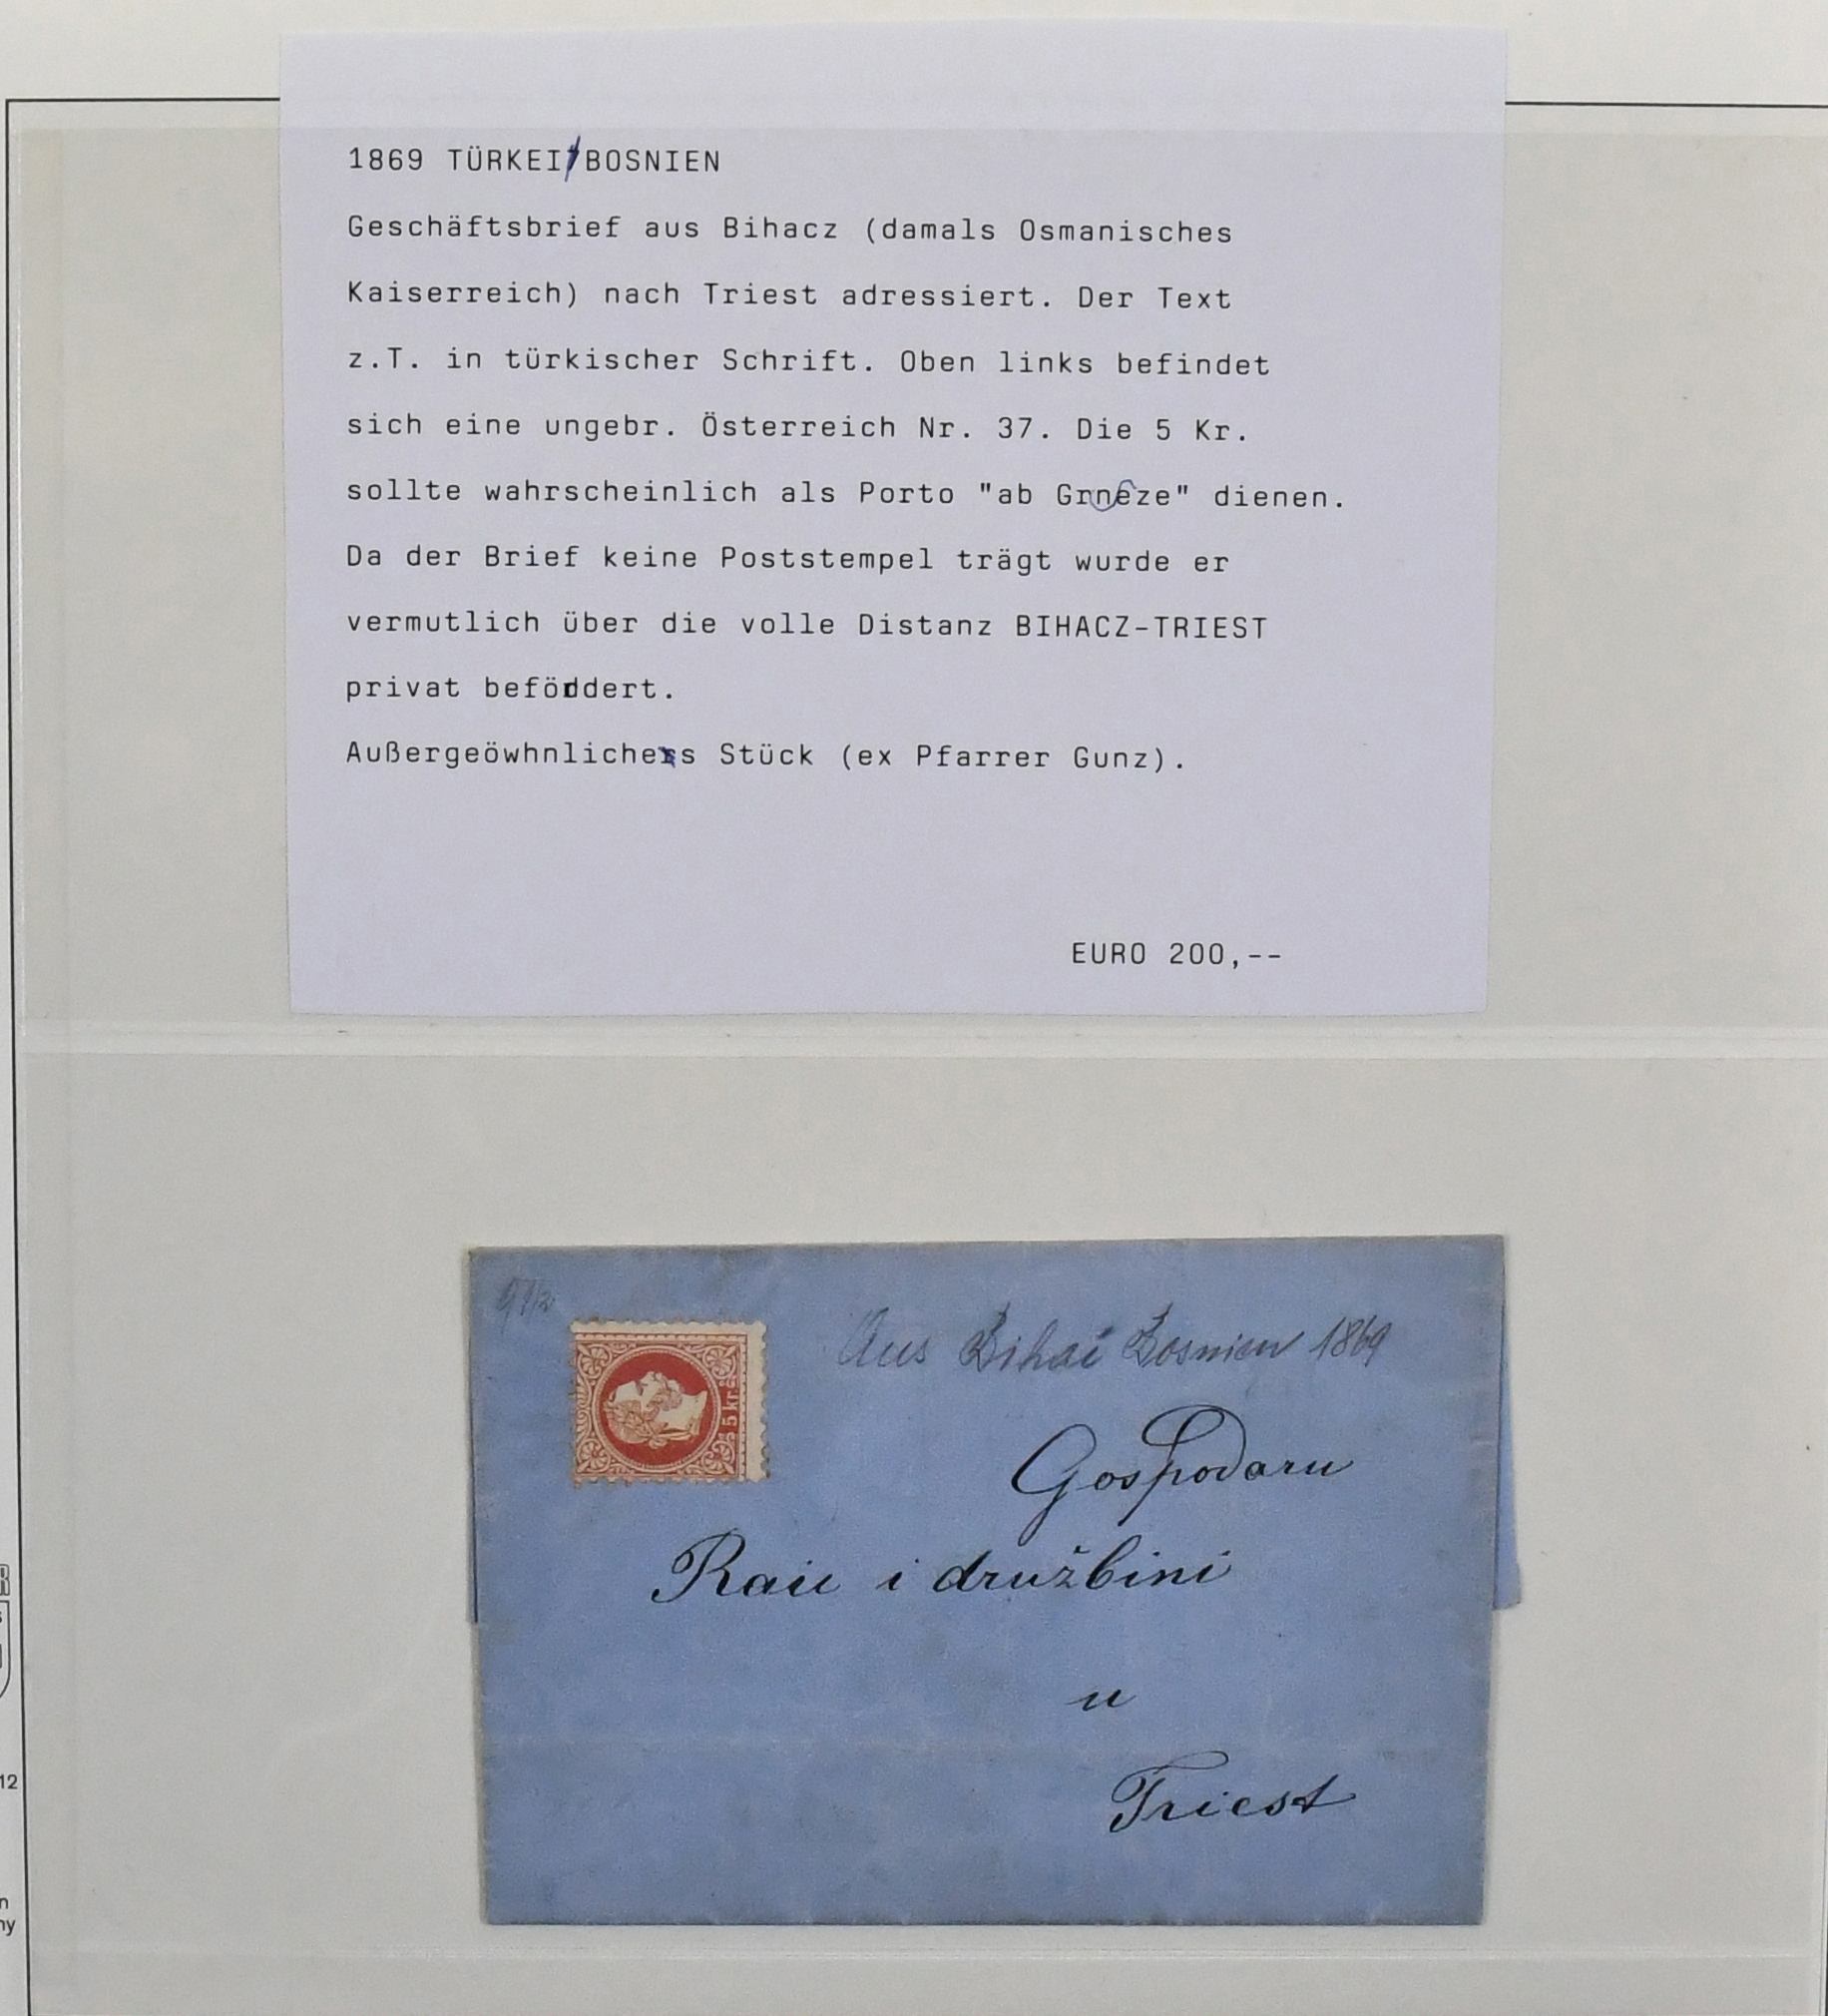 1869 TÜRKEI/BOSNIEN
Geschäftsbrief aus Bihacz (damals Osmanisches
Kaiserreich) nach Triest adressiert. Der Text
z.T. in türkischer Schrift. Oben links befindet
sich eine ungebr. Österreich Nr. 37. Die 5 Kr.
sollte wahrscheinlich als Porto "ab Grneze" dienen.
Da der Brief keine Poststempel trägt wurde er
vermutlich über die volle Distanz BIHACZ-TRIEST
privat befördert.
Außergeöwhnliches Stück (ex Pfarrer Gunz).
EURO 200,--
Aus Bihać Bosnien 1869
5 kr.
Gospodaru
Raiu i družbini
u
Triest
12